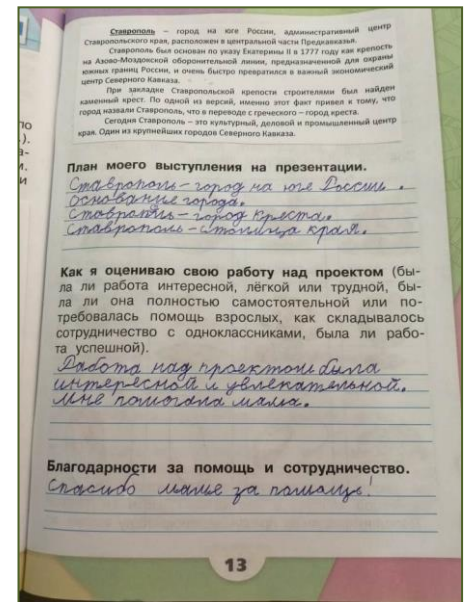 Ставрополь – город на юге России, административный центр
Ставропольского края, расположен в центральной части Предкавказья.
Ставрополь был основан по указу Екатерины II в 1777 году как крепость
на Азово-Моздокской оборонительной линии, предназначенной для охраны
южных границ России, и очень быстро превратился в важный экономический
центр Северного Кавказа.
При закладке Ставропольской крепости строителями был найден
каменный крест. По одной из версий, именно этот факт привел к тому, что
город назвали Ставрополь, что в переводе с греческого – город креста.
Сегодня Ставрополь – это культурный, деловой и промышленный центр
края. Один из крупнейших городов Северного Кавказа.
План моего выступления на презентации.
Ставрополь – город на юге России.
Основание города.
Ставрополь – город креста.
Ставрополь – столица края.
Как я оцениваю свою работу над проектом (бы-
ла ли работа интересной, лёгкой или трудной, бы-
ла ли она полностью самостоятельной или по-
требовалась помощь взрослых, как складывалось
сотрудничество с одноклассниками, была ли рабо-
та успешной).
Работа над проектом была
интересной и увлекательной.
Мне помогала мама.
Благодарности за помощь и сотрудничество.
Спасибо маме за помощь!
13